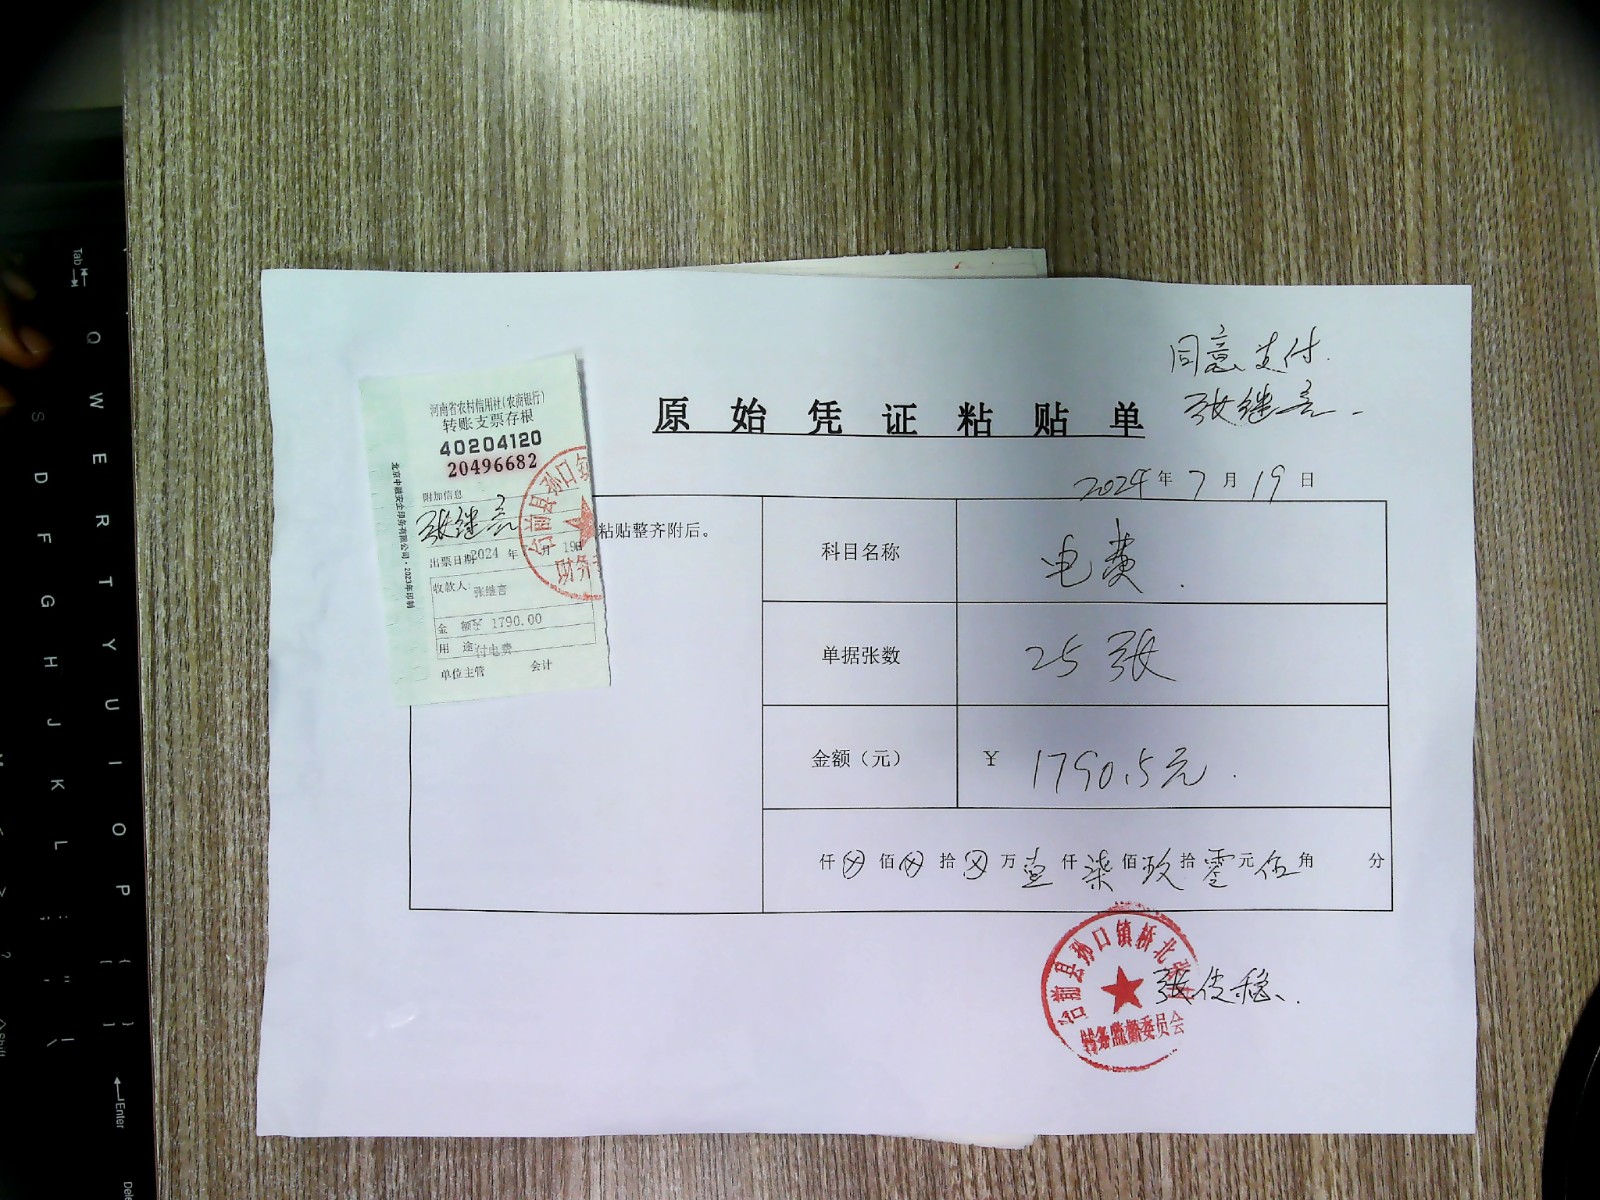 同意支付.
张继言.
原始凭证粘贴单
2024年7月19日
河南省农村信用社(农商银行)
转账支票存根
40204120
20496682
附加信息
张继言
出票日期2024 年 月 19日
收款人:张继言
金 额¥ 1790.00
用 途付电费
单位主管 会计
北京中融安全印务有限公司·2023年印制
台前县孙口镇
财务
粘贴整齐附后。
科目名称 电费.
单据张数 25张
金额（元） ￥ 1790.5元.
仟ⓧ佰ⓧ拾ⓧ万壹仟柒佰玖拾零元伍角 分
台前县孙口镇桥北张
财务监督委员会
Tab
Q W E R T Y U I O P
S D F G H J K L
Enter
Shift